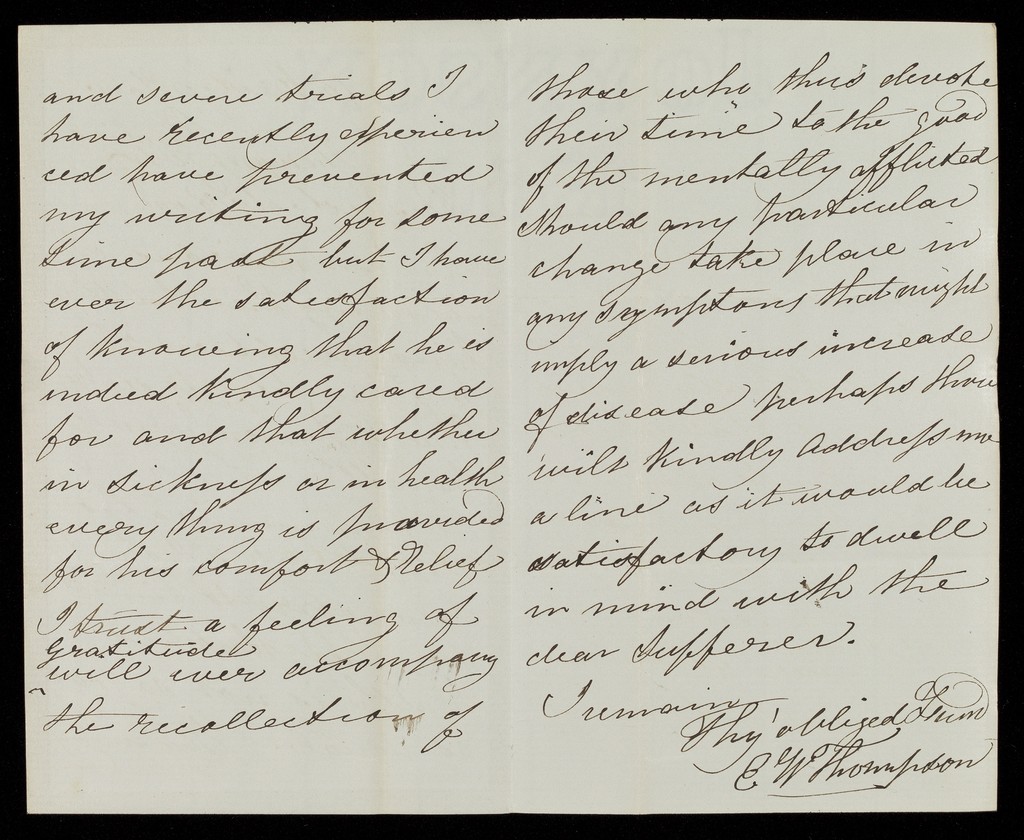 and severe trials I
have recently experien
ced have prevented
my writing for some
time past but I have
ever the satisfaction
of knowing that he is
indeed kindly cared
for and that whether
in sickness or in health
every thing is provided
for his comfort & relief
I trust a feeling of
gratitude
will ever accompany
the recollection of
those who thus devote
their time to the good
of the mentally afflicted
Should any particular
change take place in
any symptons that might
imply a serious increase
of disease perhaps thou
wilt kindly address me
a line as it would be
satisfactory to dwell
in mind with the
dear Sufferer.
I remain
Thy obliged Friend
E W Thompson